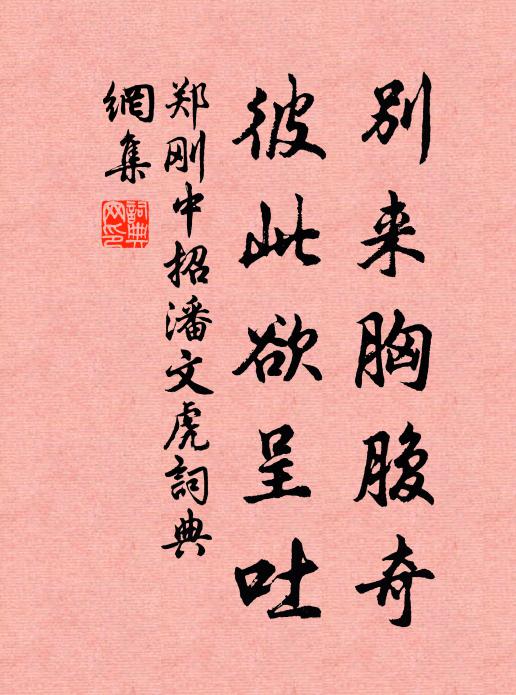 別来胸腹奇
彼此欲呈吐
郑刚中招潘文虎詞典
網集
詞典
网印